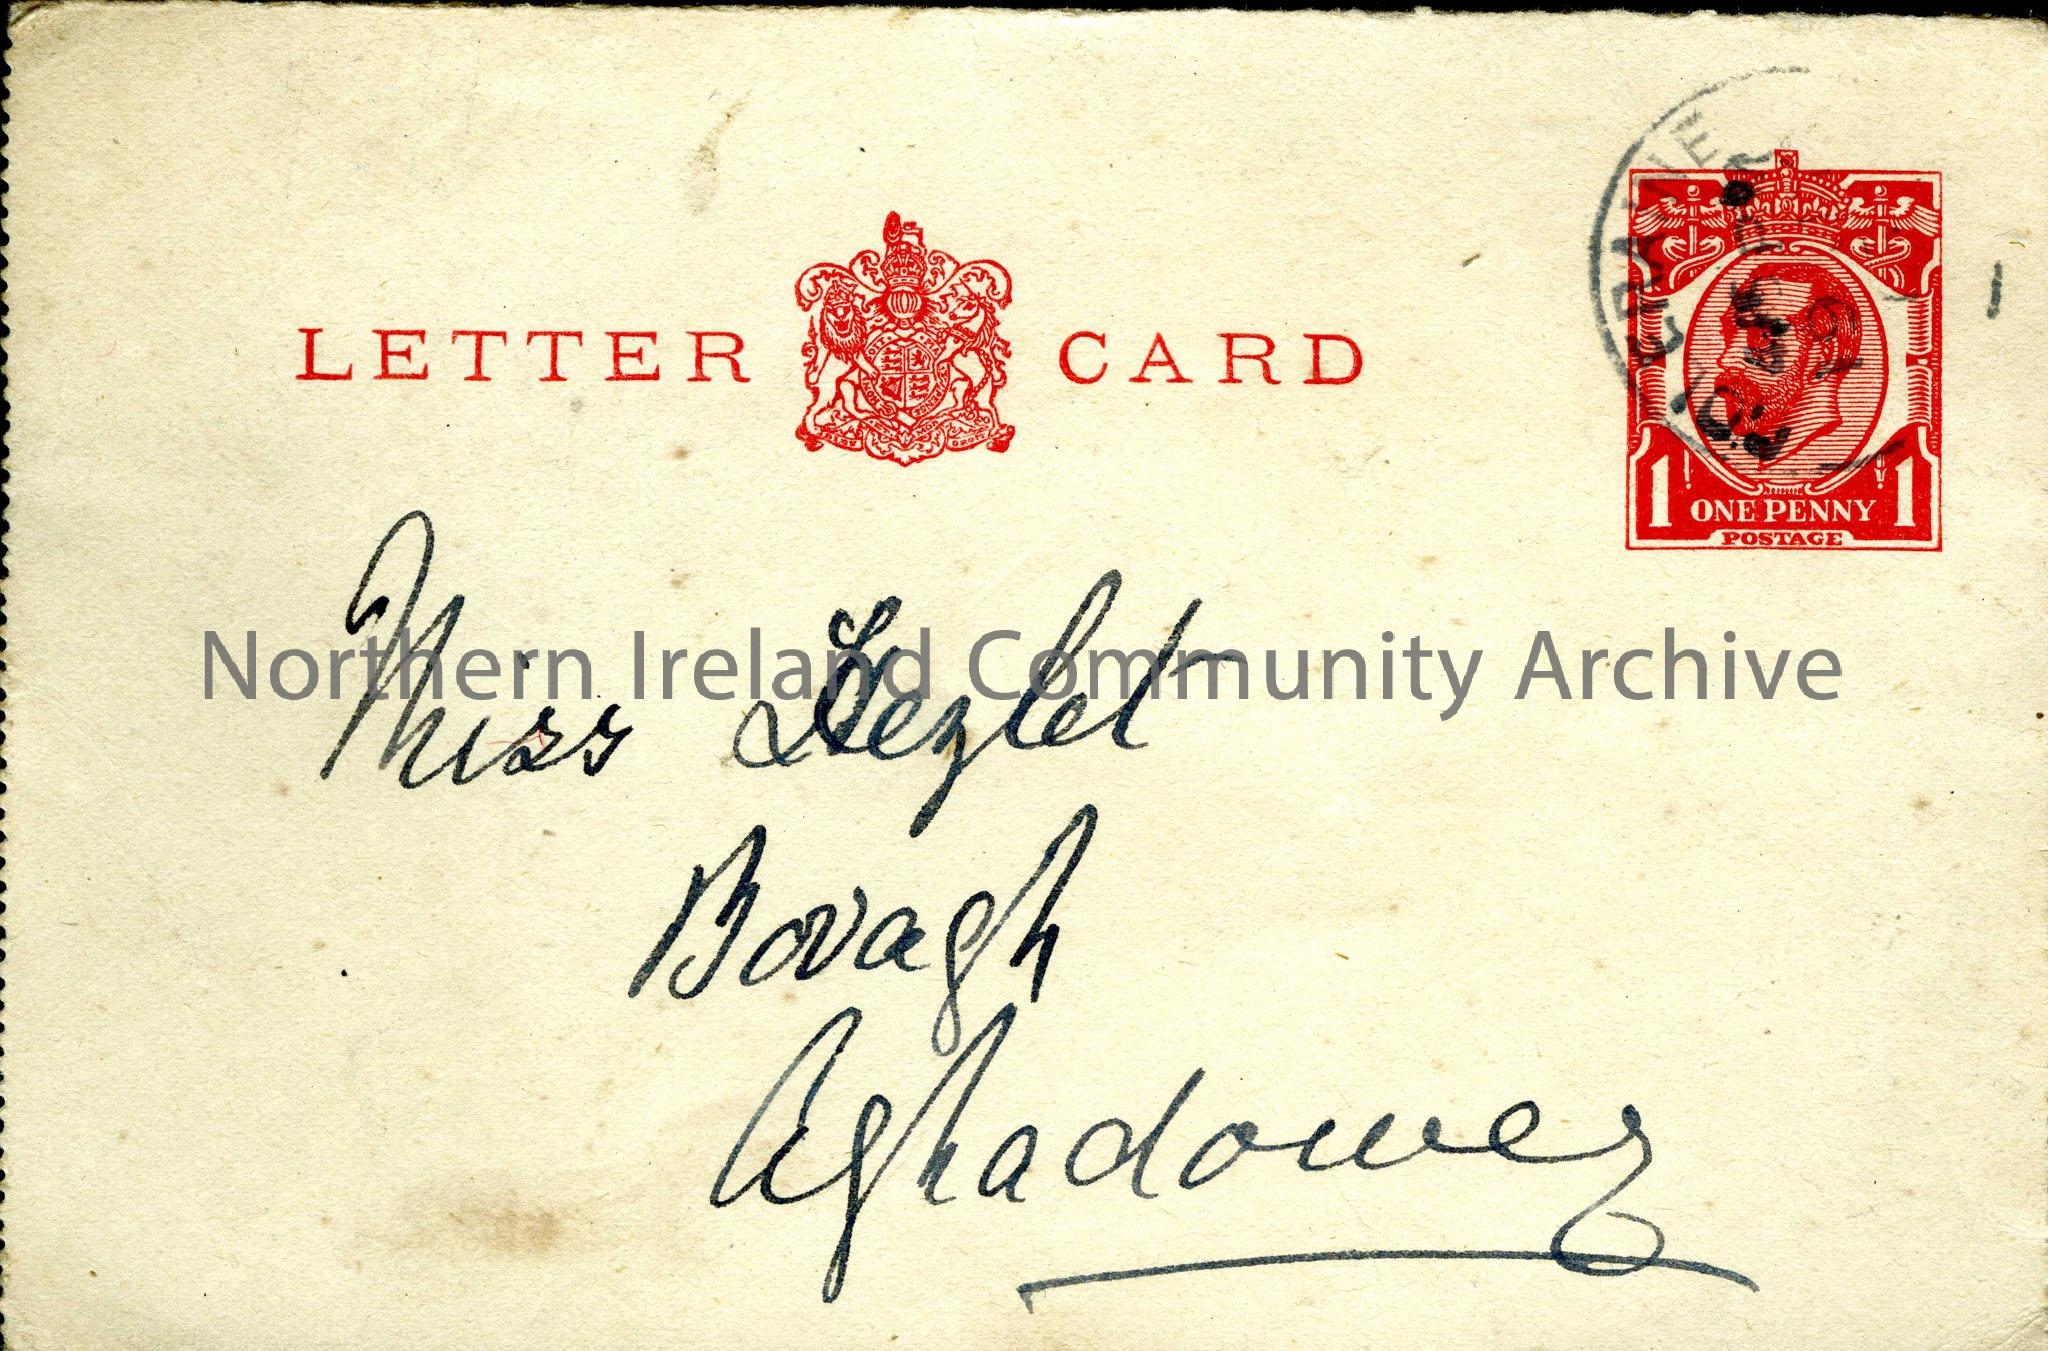 LETTER CARD
1 ONE PENNY 1
POSTAGE
Northern Ireland Community Archive
Miss Hezlet
Bovagh
Aghadowey